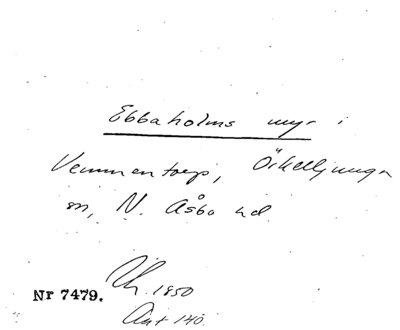 Ebbaholms myr i
Vemmentorp, Örkelljunga
sn, N. Åsbo hd.
Nr 7479.
1850
Ant 140.